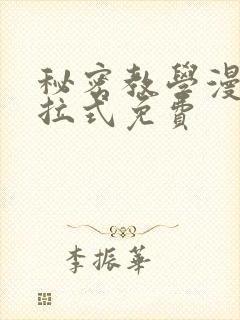 秘密教學漫
拉式免費
李振華